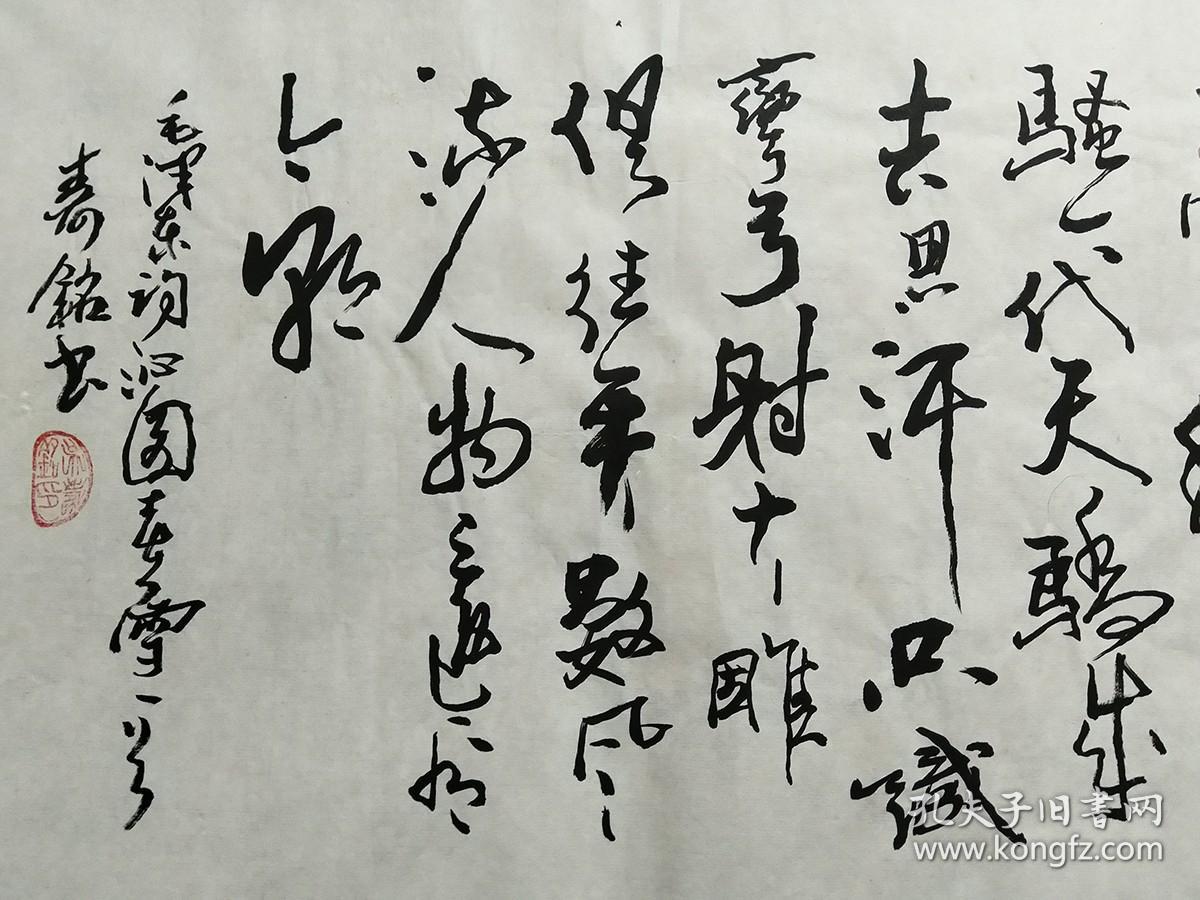 骚一代天骄成
吉思汗只識
彎弓射大雕
俱往年數風
流人物还看
今朝
毛澤东词沁園春雪一首
壽銘书
孔夫子旧書网
www.kongfz.com